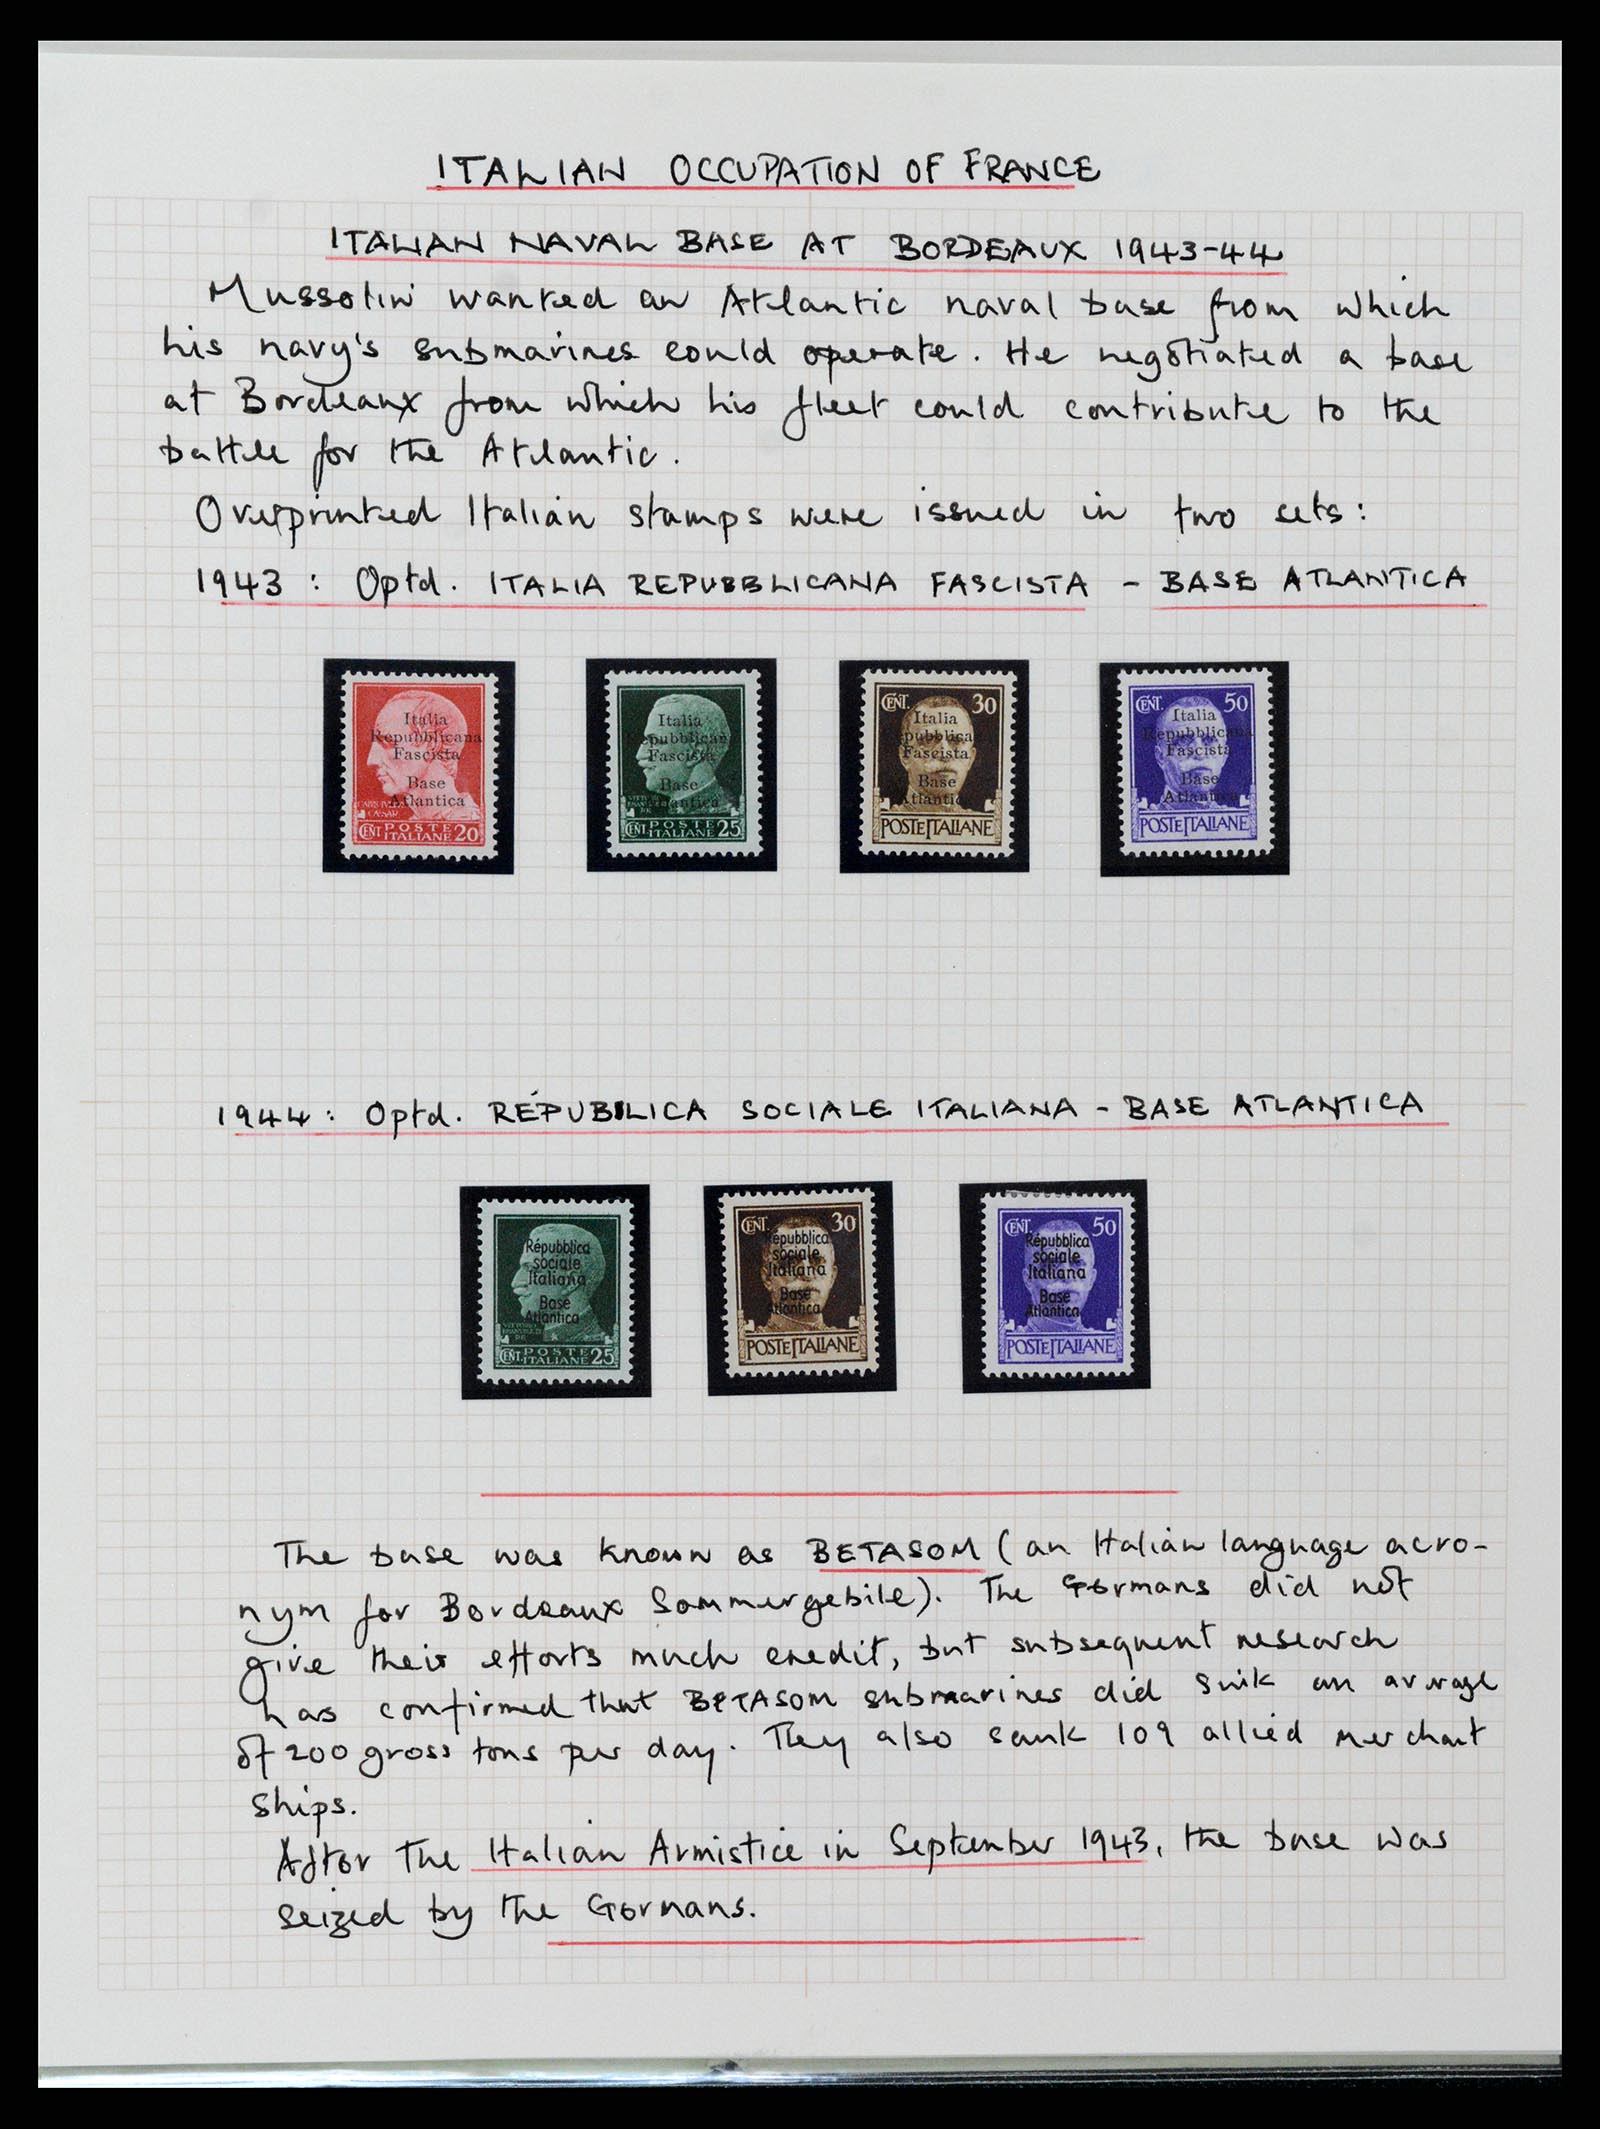 ITALIAN OCCUPATION OF FRANCE
ITALIAN NAVAL BASE AT BORDEAUX 1943-44
Mussolini wanted an Atlantic naval base from which
his navy's submarines could operate. He negotiated a base
at Bordeaux from which his fleet could contribute to the
battle for the Atlantic.
Overprinted Italian stamps were issued in two sets:
1943: Optd. ITALIA REPUBBLICANA FASCISTA - BASE ATLANTICA
Italia
Repubblicana
Fascista
Base
Atlantica
CENT POSTE ITALIANE 20
Italia
Repubblicana
Fascista
Base
Atlantica
CENT POSTE ITALIANE 25
CENT. 30
Italia
Repubblicana
Fascista
Base
Atlantica
POSTE ITALIANE
CENT. 50
Italia
Repubblicana
Fascista
Base
Atlantica
POSTE ITALIANE
1944: Optd. RÉPUBBLICA SOCIALE ITALIANA - BASE ATLANTICA
Répubblica
sociale
Italiana
Base
Atlantica
CENT. POSTE ITALIANE 25
CENT. 30
Répubblica
sociale
Italiana
Base
Atlantica
POSTE ITALIANE
CENT. 50
Répubblica
sociale
Italiana
Base
Atlantica
POSTE ITALIANE
The base was known as BETASOM (an Italian language acro-
nym for Bordeaux Sommergebile). The Germans did not
give their efforts much credit, but subsequent research
has confirmed that BETASOM submarines did sink an average
of 200 gross tons per day. They also sank 109 allied merchant
ships.
After the Italian Armistice in September 1943, the base was
seized by the Germans.